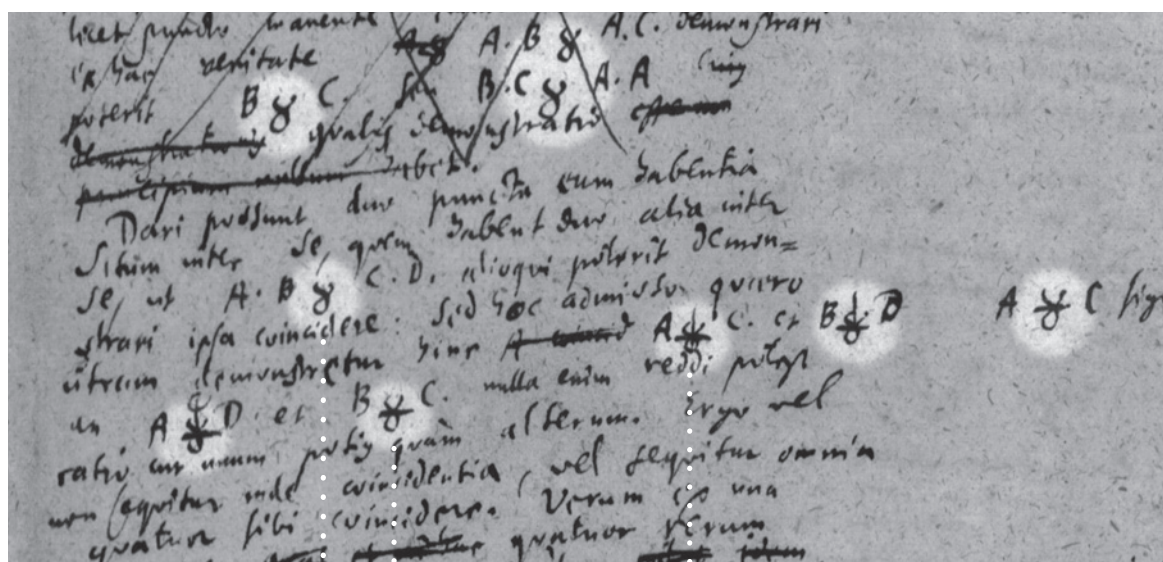 licet puncto manente A.C. demonstrari
ex hac veritate A. B ȣ
poterit B ȣ C. seu B. C ȣ A. A
qualis demonstratio
habet.
Dari possunt duo puncta eum habentia
Situm inter se, quem habent duo alia inter
se, ut A. B ȣ C. D. alioqui poterit demon=
strari ipsa coincidere. Sed hoc admisso quaero
utrum demonstretur hinc A ȣ C. et B ȣ D A ȣ C
an A ȣ D et B ȣ C. nulla enim reddi potest
ratio cur unum potius quam alterum. Ergo vel
non sequitur inde coincidentia, vel sequitur omnia
quatuor sibi coincidere. Verum una
quatuor rerum